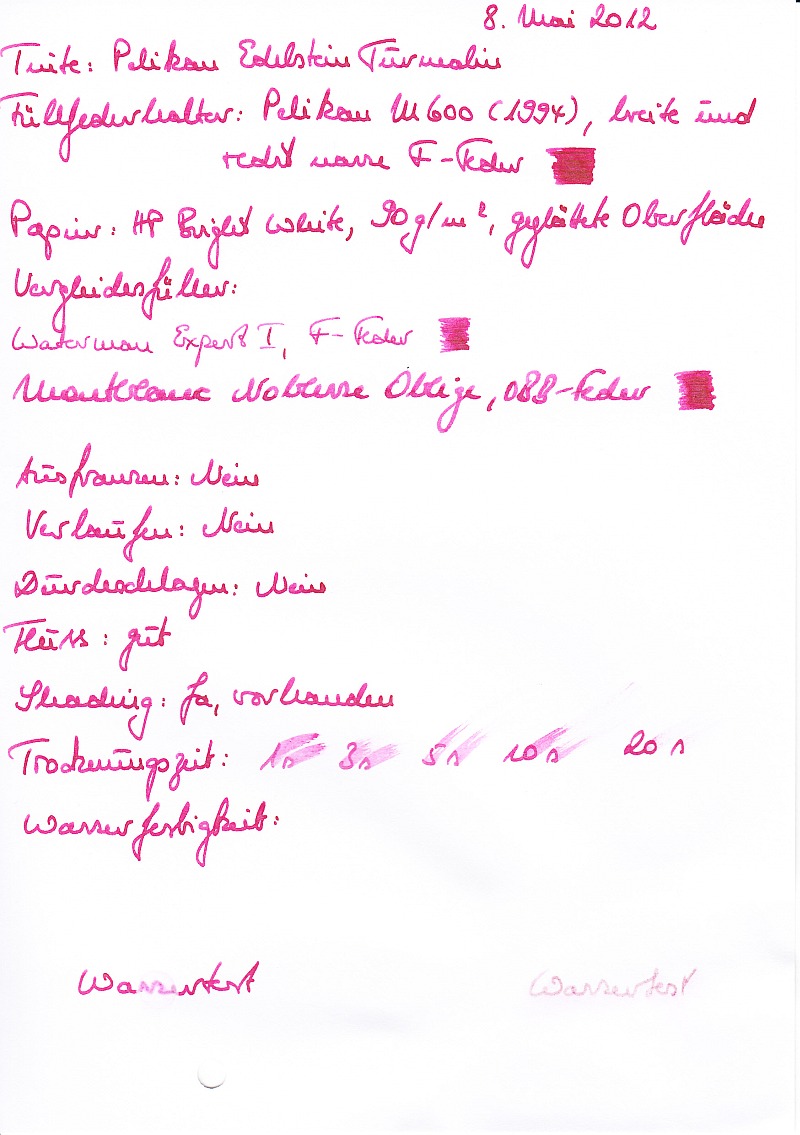 8. Mai 2012
Tinte: Pelikan Edelstein Turmalin
Füllfederhalter: Pelikan M600 (1994), breite und
recht nasse F-Feder
Papier: HP Bright White, 90g/m², geglättete Oberfläche
Vergleichsfüller:
Waterman Expert I, F-Feder
Montblanc Noblesse Oblige, OBB-Feder
Ausfransen: Nein
Verlaufen: Nein
Durchschlagen: Nein
Fluss: gut
Shading: Ja, vorhanden
Trocknungszeit: 1s 3s 5s 10s 20s
Wasserfestigkeit:
Wassertest Wassertest